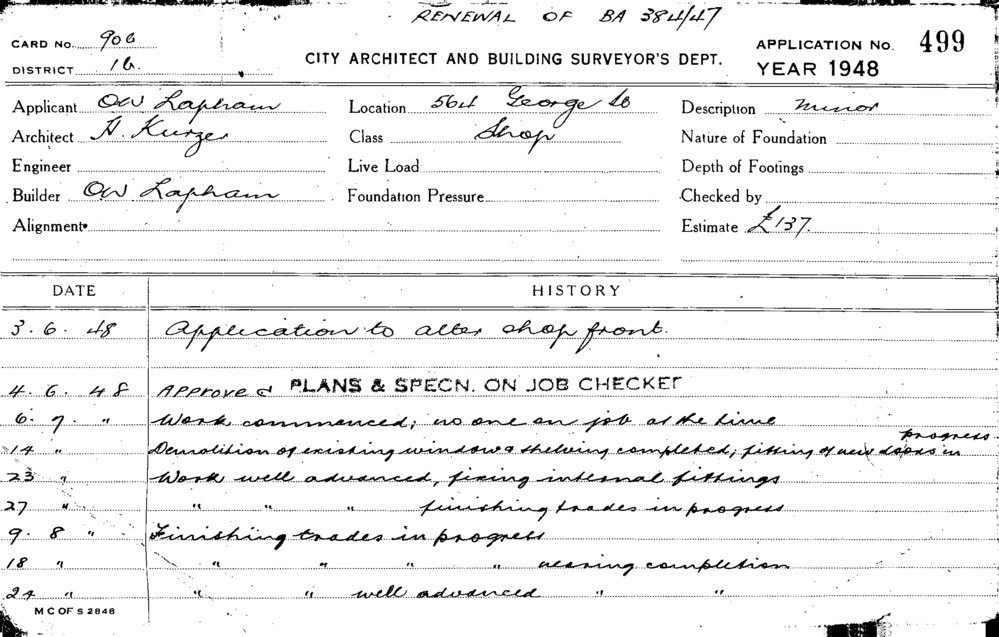 RENEWAL OF BA 384/47
CARD No. 906
DISTRICT 16.
CITY ARCHITECT AND BUILDING SURVEYOR'S DEPT.
APPLICATION No. 499
YEAR 1948
Applicant OW Lapham
Architect H. Kurzer
Engineer
Builder OW Lapham
Alignment
Location 564 George St
Class Shop
Live Load
Foundation Pressure
Description Minor
Nature of Foundation
Depth of Footings
Checked by
Estimate £137.
DATE HISTORY
3. 6. 48 Application to alter shop front.
4. 6. 48 Approved PLANS & SPECN. ON JOB CHECKED
6. 7. " Work commenced; no one on job at the time
14 " Demolition of existing window & shelving completed; fitting of new doors in progress.
23 " Work well advanced, fixing internal fittings
27 " " " " finishing trades in progress
9. 8 " Finishing trades in progress
18 " " " " " nearing completion
24 " " " well advanced " "
M C OF S 2848